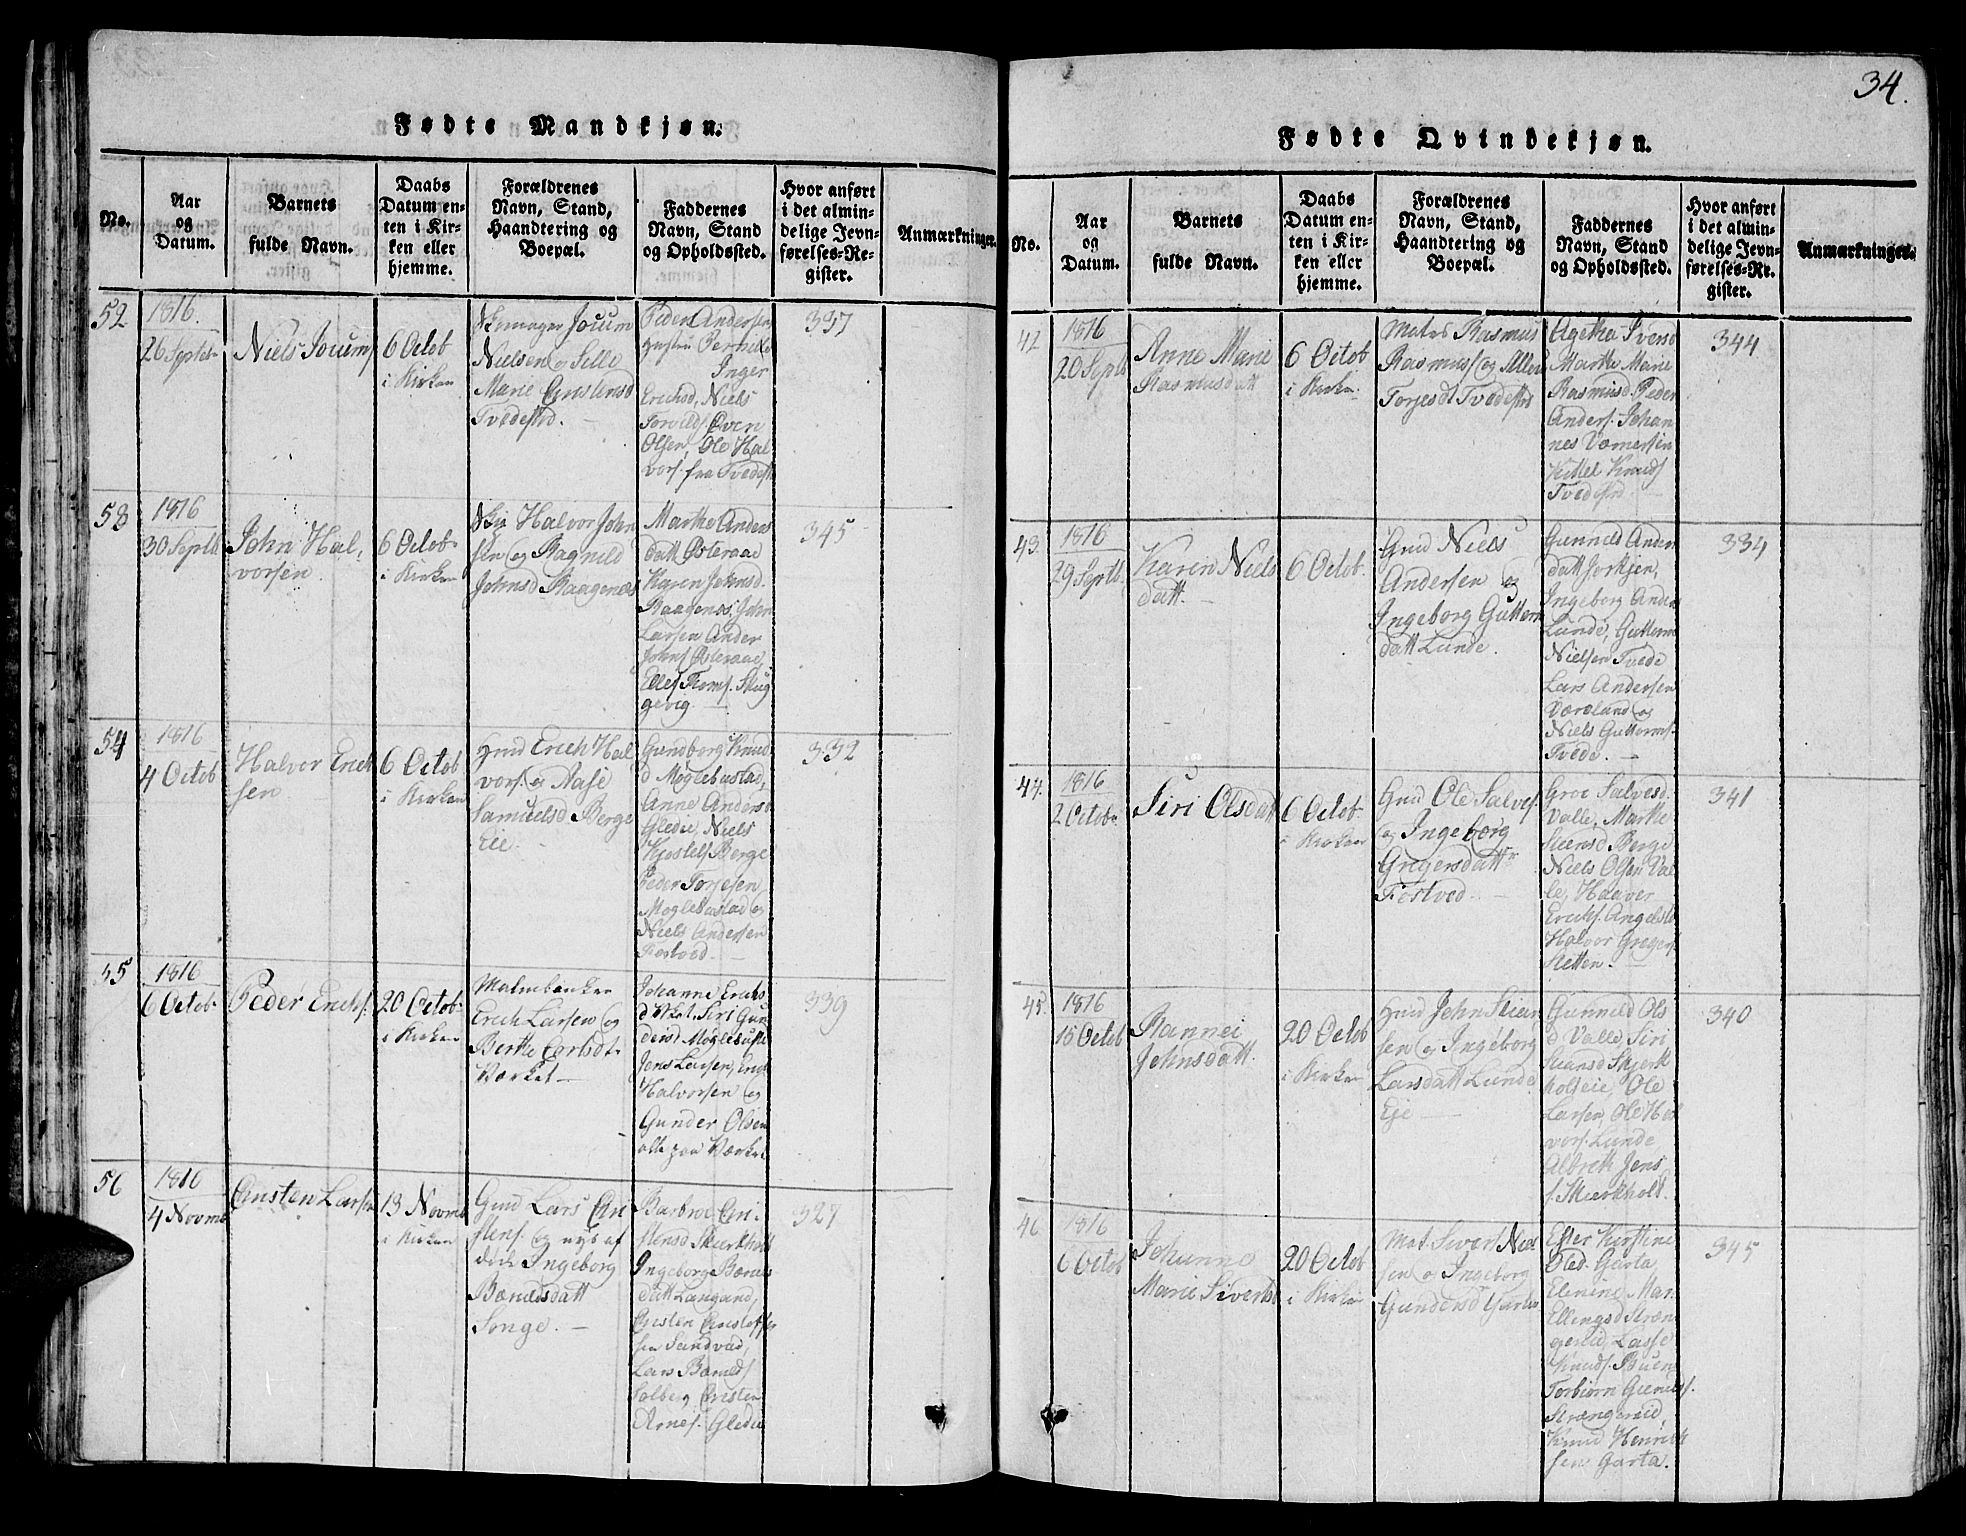 34.
Fødte Mandkjøn.
No.
Aar
og
Datum.
Barnets
fulde Navn.
Daabs
Datum en-
ten i Kir-
ken eller
hjemme.
Forældrenes
Navn, Stand,
Haandtering og
Boepæl.
Faddernes
Navn, Stand
og Opholdssted.
Hvor anført
i det almin-
delige Jevn-
førelses-Re-
gister.
Anmærkninger.
52
1816.
26 Septbr
Niels Joums
6 Octob
i Kirken
Skomager Joum
Nielsen og Sille
Marie Cristensd
Tvedestrd.
Peder Andersen
hustru Pernille
Inger
Erichsd, Niels
Torvilds. Even
Olsen, Ole Hal
vors. fra Tvedest
337
53
1816
30 Septb
John Hal-
vorsen.
6 Octob
i Kirken
Halvor John
sen og Ragnild
Johnsd Raagenæs
Marthe Anders
datt Østeraae
Karen Johnsd.
Raagenæs, John
Larsen Ander
Johns Østeraae,
Ellef Thoms. Skug
gevig
345
54
1816
4 Octob
Halvor Erich
sen
6 Octob
i Kirken
Gmd Erich Hal
vors. og Aase
Samuelsd Berge
Eie.
Gundborg Knud
d Møglebustad,
Anne Andersd
Gledie, Niels
Kjøstels Berge
Peder Torjesen
Moglebustad og
Niels Andersen
Fostved.
332
55
1816
6 Octob
Peder Erichs.
20 Octob
i Kirken
Malmbanker
Erich Larsen og
Berthe Carlsdt
Værket
Johanne Erichs
d Vket. Siri Gun
dersd Møglebust
Jens Larsen, Erich
Halvorsen og
Gunder Olsen
alle paa Værket
339
56
1816
4 Novmb
Cristen Larsen
13 Novmb
i Kirken
Gmd Lars Cri
stens. og nys af
døde Ingeborg
Bærulsdatt
Songe.
Barbroe Cri-
stensd Skierkholt
Ingeborg Bærul
datt Langand,
Cristen Cristoffer
sen Sandvad,
Lars Bærulds
Solberg Cristen
Arnes. Gledie
327
Fødte Qvindekjøn.
No.
Aar
og
Datum.
Barnets
fulde Navn.
Daabs
Datum en-
ten i Kir-
ken eller
hjemme.
Forældrenes
Navn, Stand,
Haandtering og
Boepæl.
Faddernes
Navn, Stand
og Opholdssted.
Hvor anført
i det almin-
delige Jevn-
førelses-Re-
gister.
Anmærkninger.
42
1816
20 Septb
Anne Marie
Rasmusdatt
6 Octob
i Kirken
Matrs Rasmus
Rasmus og Allen
Torjesdt Tvedestrd
Agetha Ivers
Marthe Marie
Rasmusd. Peder
Anders. Johan
nes Værnersen
Kittel Knuds
Tvedestrd.
344
43.
1816
29 Septb.
Karen Niels
datt.
6 Octob.
Gmd Niels
Andersen og
Ingeborg Guttorm
datt Lunde.
Gunnild Ander
datt Jorkjen,
Ingeborg Anders
Lunde, Guttorm
Nielsen Tvede
Lars Andersen
Værdland og
Niels Guttorms
Tvede.
334
44.
1816
2 Octobr
Siri Olsdatt
6 Octob
i Kirken
Gmd Ole Salves.
og Ingeborg
Gregersdattr
Fostved.
Groe Salvesd.
Valle, Marthe
Steensd Berge
Niels Olsen Val
le, Haaver
Erichs. Angelst
Halvor Gregers
Sletten.
341
45.
1816
15 Octob
Rannei
Johnsdatt.
20 Octob
i Kirken
Hmd John Steen
sen og Ingeborg
Larsdatt Lunde
Eje
Gunnild Ols
d Valle, Siri
Steansd Skjerk
holseie, Ole
Larsen, Ole Hal
vors. Lunde
Albreth Jens
s. Skierkholt.
340
46
1816
6 Octob
Johanne
Marie Siverts
20 Octob
i Kirken
Mat. Sivert Niel
sen og Ingeborg
Gundersd Garta
Ester Kirstine
Olsd. Garta,
Elenine Mar.
Ellingsd Stræn
gereid, Lasse
Knuds. Buen
Torbiørn Giermds.
Strængereid,
Knud Henrich
sen Garta.
345